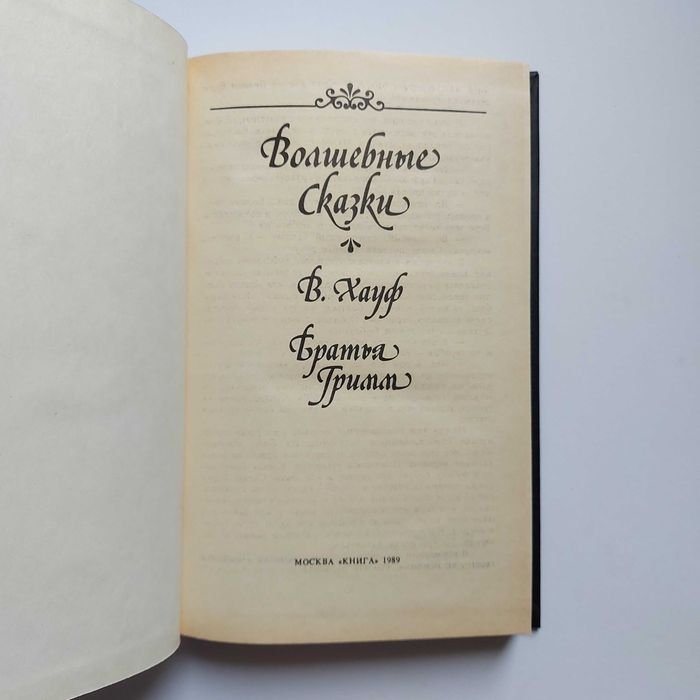 Волшебные
Сказки
В. Хауф
Братья
Гримм
МОСКВА «КНИГА» 1989